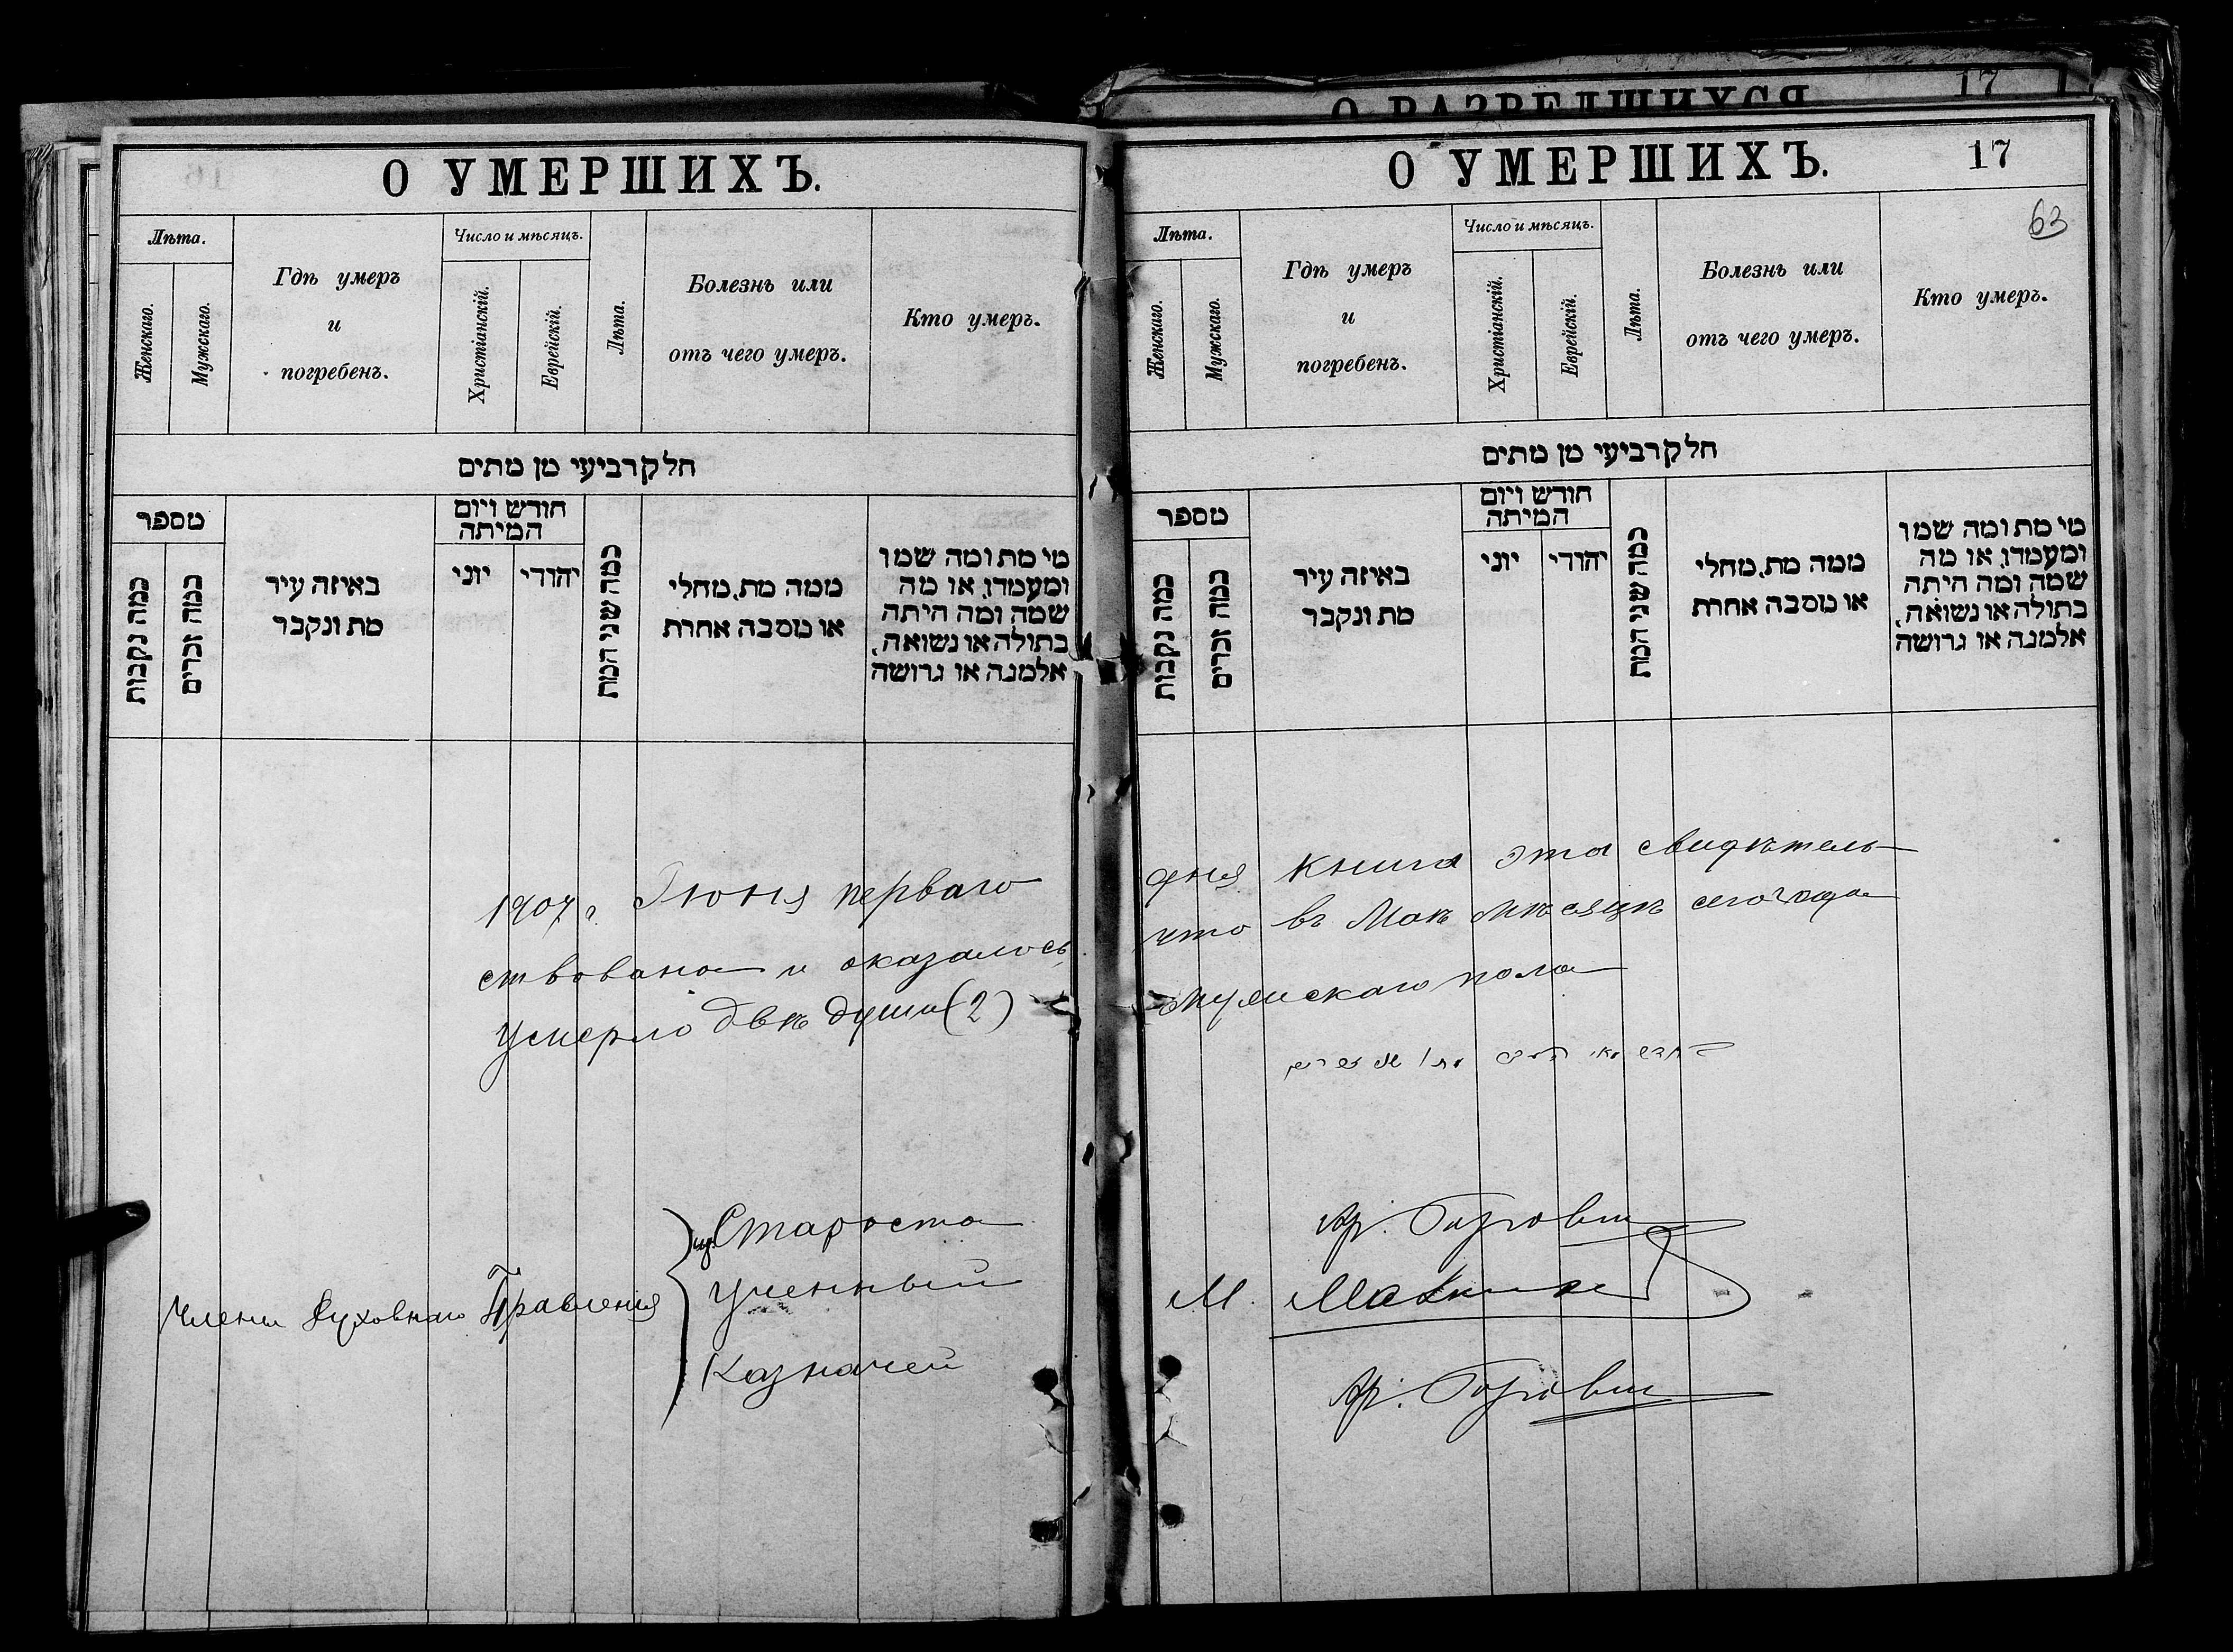 О РАЗВЕДШИХСЯ
17
О УМЕРШИХЪ.
Лѣта.
Женскаго.
Мужскаго.
Гдѣ умеръ
и
погребенъ.
Число и мѣсяцъ.
Христіанскій.
Еврейскій.
Лѣта.
Болезнь или
отъ чего умеръ.
Кто умеръ.
חלק רביעי מן מתים
מספר
כמה נקבות
כמה זכרים
באיזה עיר
מת ונקבר
חודש ויום
המיתה
יוני
יהודי
כמה שני המת
ממה מת, מחלי
או מסבה אחרת
מי מת ומה שמו
ומעמדו, או מה
שמה ומה היתה
בתולה או נשואה,
אלמנה או גרושה
1907 г. Іюня перваго
ствована и оказалось,
умерло двѣ души (2)
Члены Духовнаго Правленія
Староста
Ученный
Казначей
О УМЕРШИХЪ.
17
63
Лѣта.
Женскаго.
Мужскаго.
Гдѣ умеръ
и
погребенъ.
Число и мѣсяцъ.
Христіанскій.
Еврейскій.
Лѣта.
Болезнь или
отъ чего умеръ.
Кто умеръ.
חלק רביעי מן מתים
מספר
כמה נקבות
כמה זכרים
באיזה עיר
מת ונקבר
חודש ויום
המיתה
יוני
יהודי
כמה שני המת
ממה מת, מחלי
או מסבה אחרת
מי מת ומה שמו
ומעמדו, או מה
שמה ומה היתה
בתולה או נשואה,
אלמנה או גרושה
дня книга эта свидѣтель-
что въ Маѣ мѣсяцѣ сего года
мужскаго пола
М.